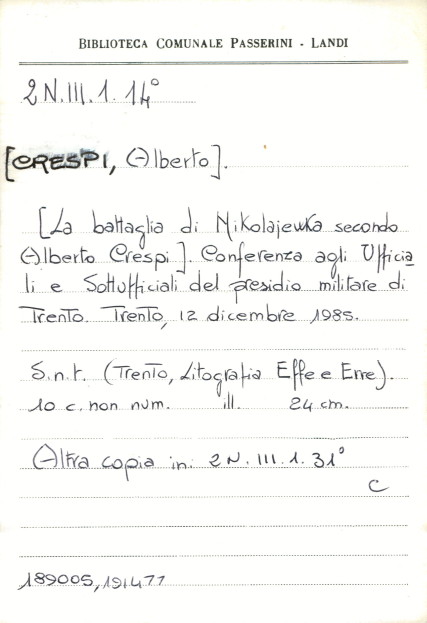 BIBLIOTECA COMUNALE PASSERINI - LANDI
2 N.III.1.14°
[CRESPI, Alberto].
[La battaglia di Nikolajewka secondo
Alberto Crespi]. Conferenza agli Ufficia
li e Sottufficiali del presidio militare di
Trento. Trento, 12 dicembre 1985.
S.n.t. (Trento, Litografia Effe e Erre).
10 c. non num. ill. 24 cm.
Altra copia in: 2 N.III.1.31°
C
189005, 191477